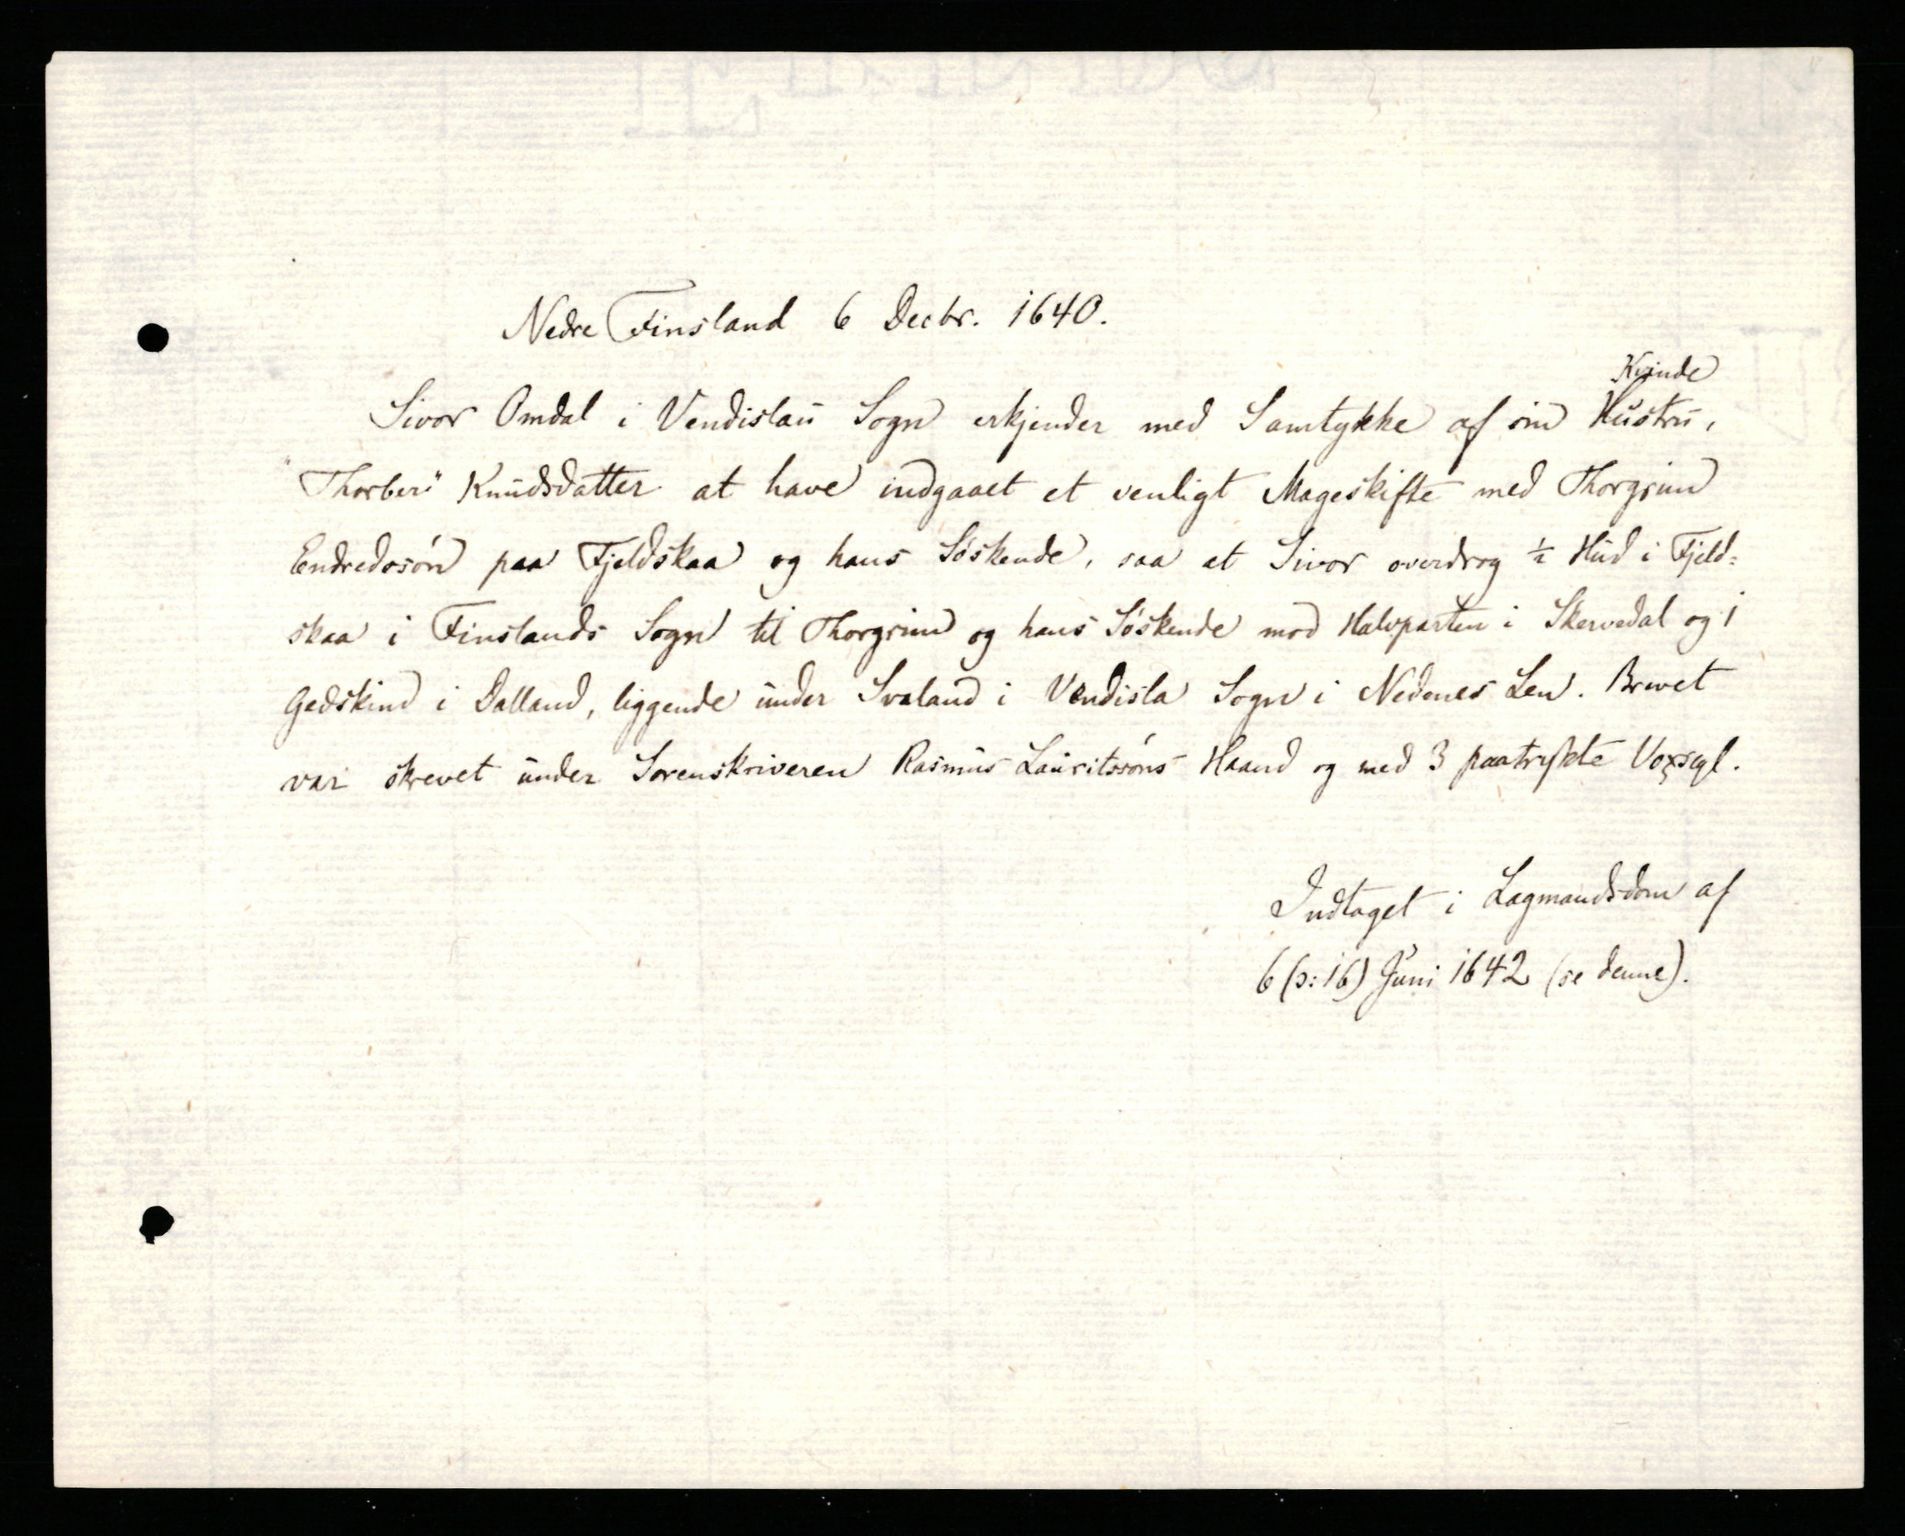 Nedre Finsland 6 Decbr. 1640.
Kvinde
Sivor Omdal i Vendislau Sogn erkjender med Samtykke af sin Hustru,
"Thorber" Knudsdatter at have indgaaet et venligt Mageskifte med Thorgrim
Endredssón paa Fjeldskaa og hans Søskende, saa at Sivor overdrog ½ Hud i Fjeld-
skaa i Finslands Sogn til Thorgrim og hans Søskende mod Halvparten i Skervedal og 1
Gedskind i Dalland, liggende under Svaland i Vendisla Sogn i Nedenes Len. Brevet
var skrevet under Sorenskriveren Rasmus Lauritssóns Haand og med 3 paatrykte Voxsegl.
Indtaget i Lagmandsdom af
6 (ɔ: 16) Juni 1642 (se denne).